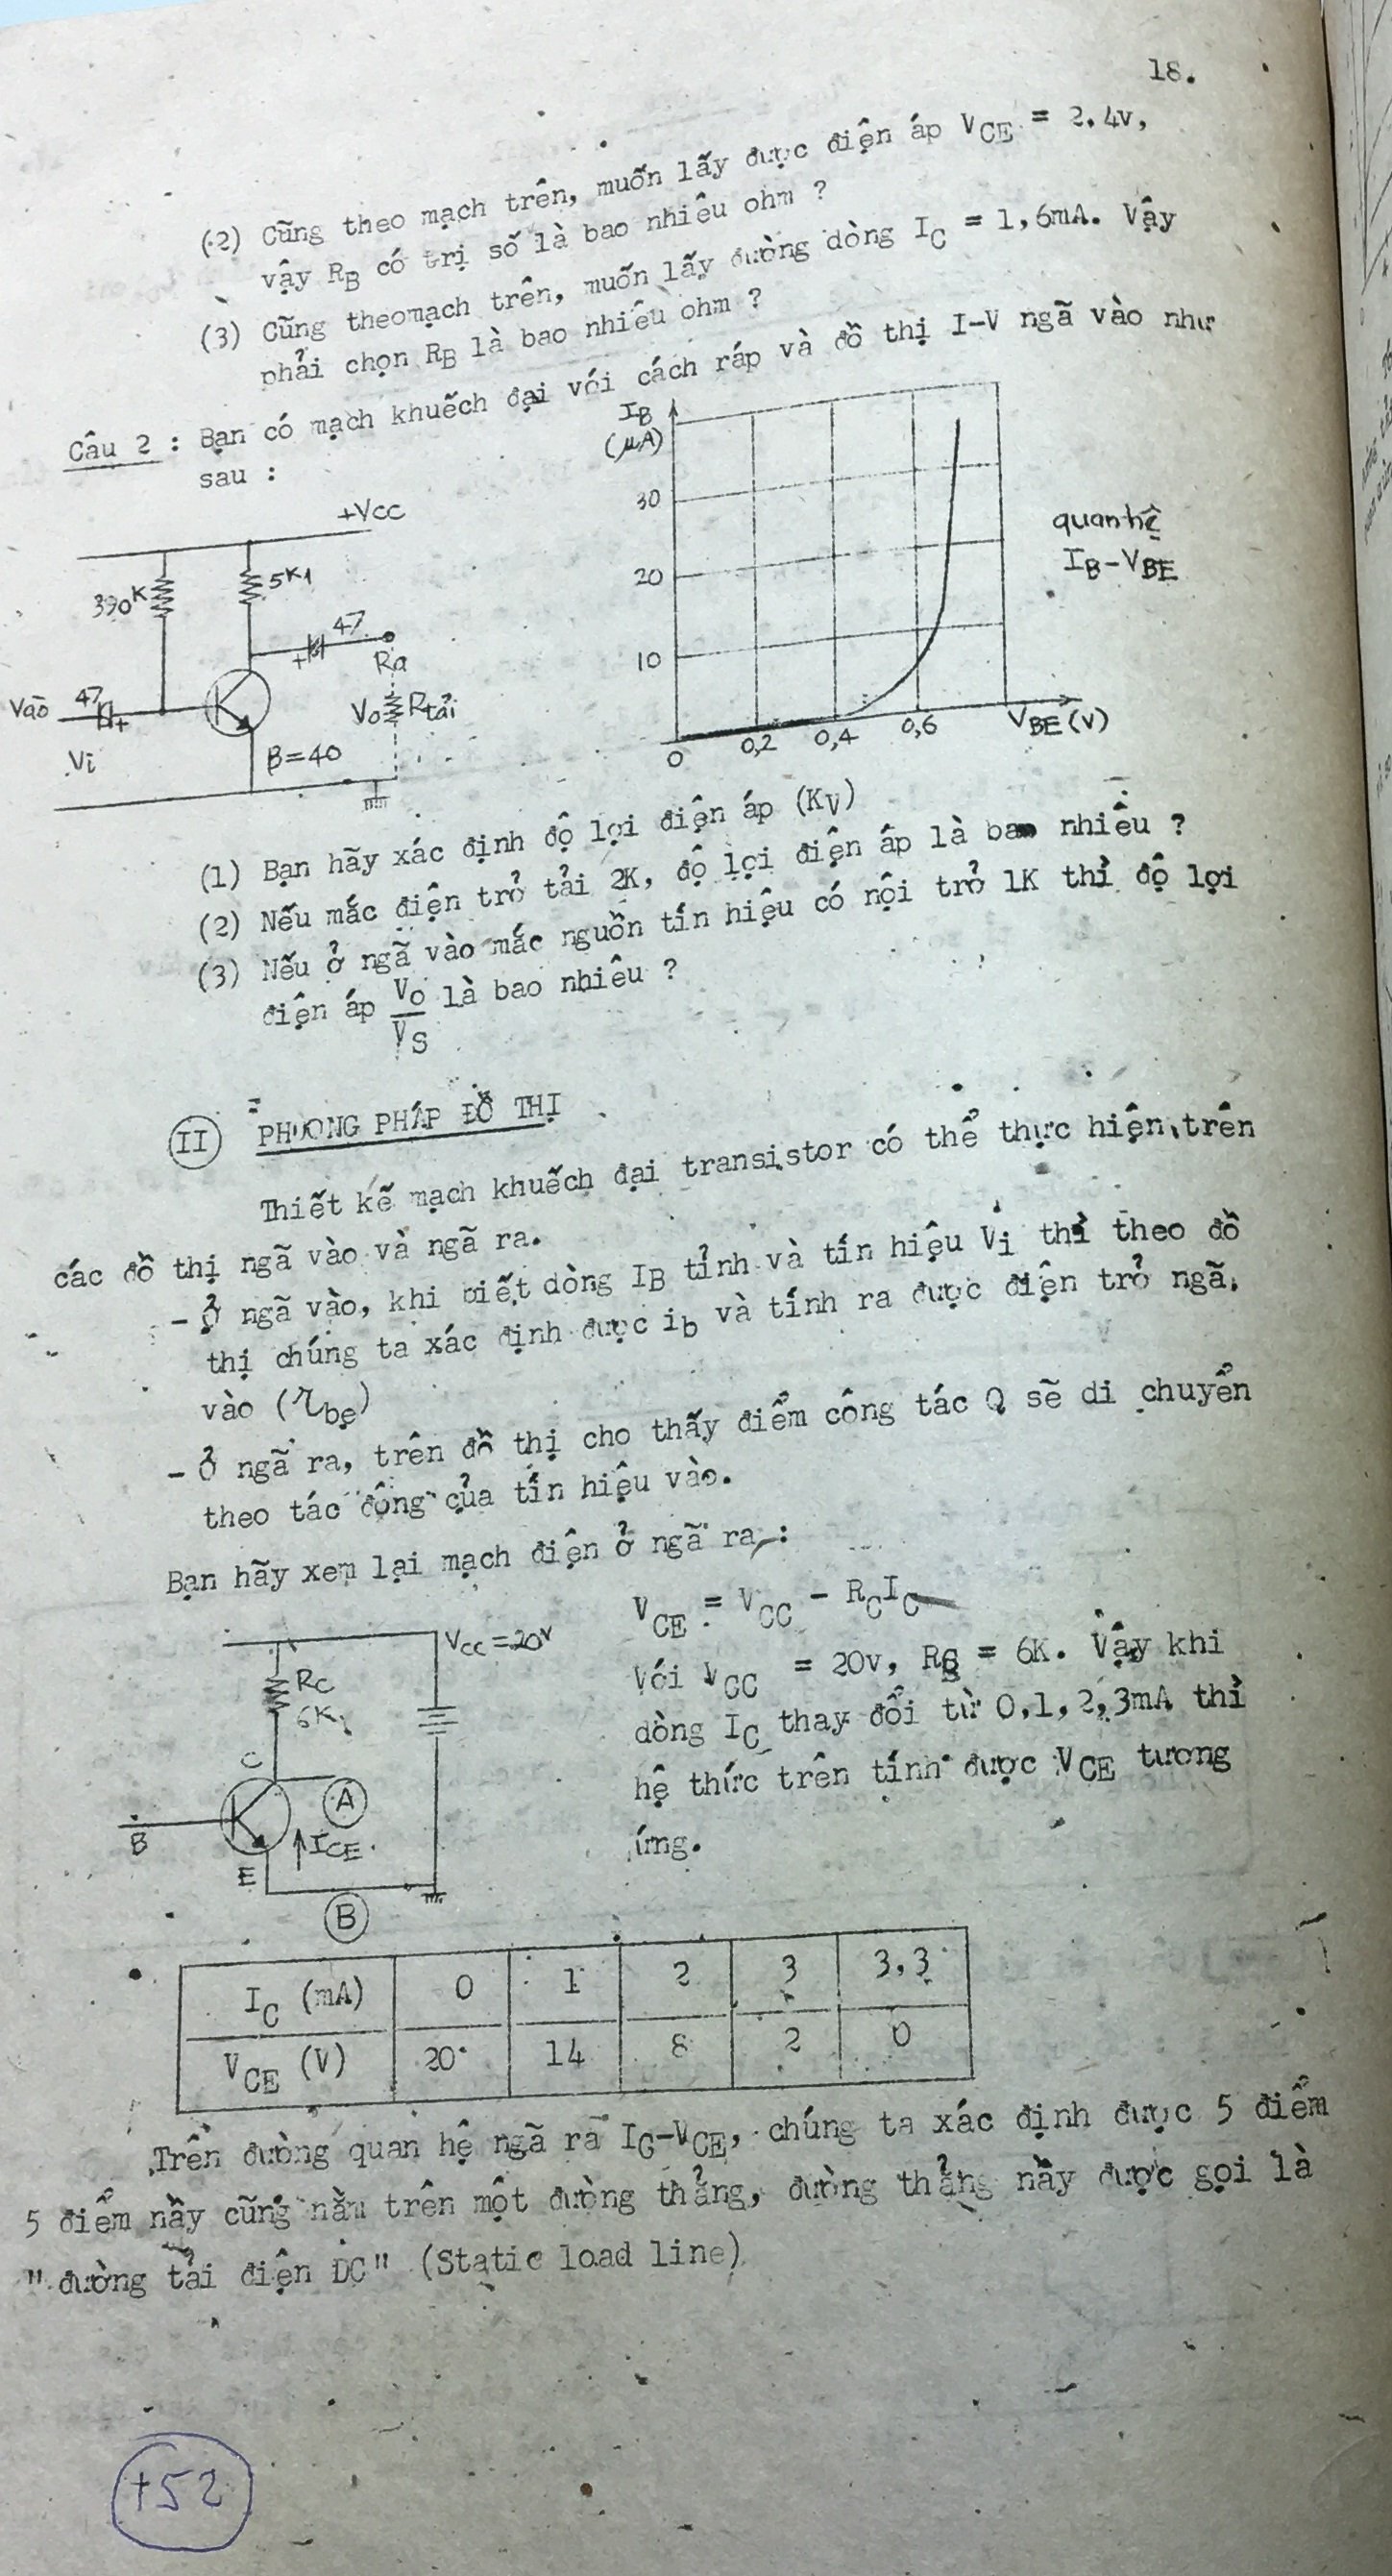 18.
(2) Cũng theo mạch trên, muốn lấy được điện áp VCE = 2.4v,
vậy RB có trị số là bao nhiêu ohm ?
(3) Cũng theomạch trên, muốn lấy đường dòng IC = 1,6mA. Vậy
phải chọn RB là bao nhiêu ohm ?
Câu 2 : Bạn có mạch khuếch đại với cách ráp và đồ thị I-V ngã vào như
sau :
+VCC
390K
5K1
47
+
Ra
Vào
47
+
Vi
Vo
Rtải
β=40
IB
(μA)
30
20
10
0
0,2
0,4
0,6
VBE (V)
quan hệ
IB-VBE
(1) Bạn hãy xác định độ lợi điện áp (KV)
(2) Nếu mắc điện trở tải 2K, độ lợi điện áp là bao nhiêu ?
(3) Nếu ở ngã vào mắc nguồn tín hiệu có nội trở 1K thì độ lợi
điện áp Vo/VS là bao nhiêu ?
II PHƯƠNG PHÁP ĐỒ THỊ
Thiết kế mạch khuếch đại transistor có thể thực hiện trên
các đồ thị ngã vào và ngã ra.
- Ở ngã vào, khi biết dòng IB tỉnh và tín hiệu Vi thì theo đồ
thị chúng ta xác định được ib và tính ra được điện trở ngã
vào (rbe)
- Ở ngã ra, trên đồ thị cho thấy điểm công tác Q sẽ di chuyển
theo tác động của tín hiệu vào.
Bạn hãy xem lại mạch điện ở ngã ra :
VCC = 20V
RC
6K
C
B
E
A
ICE
B
VCE = VCC - RCIC
Với VCC = 20v, RC = 6K. Vậy khi
dòng IC thay đổi từ 0,1,2,3mA thì
hệ thức trên tính được VCE tương
ứng.
IC (mA) 0 1 2 3 3,3
VCE (V) 20 14 8 2 0
Trên đường quan hệ ngã ra IC-VCE, chúng ta xác định được 5 điểm
5 điểm nầy cũng nằm trên một đường thẳng, đường thẳng nầy được gọi là
"đường tải điện DC" (Static load line)
+52